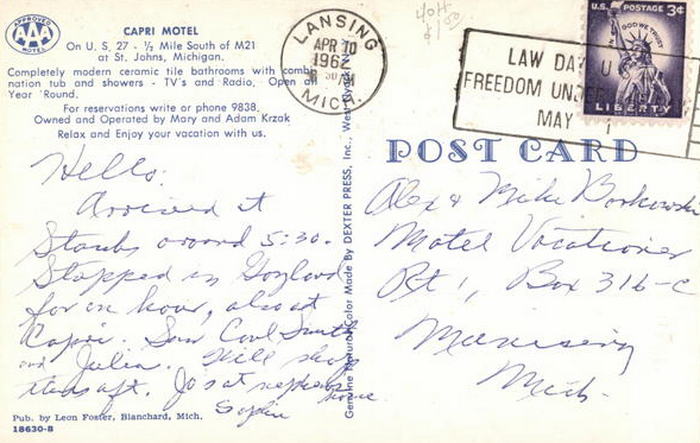 APPROVED
AAA
MOTEL
CAPRI MOTEL
On U. S. 27 - ½ Mile South of M21
at St. Johns, Michigan.
Completely modern ceramic tile bathrooms with combi-
nation tub and showers - TV's and Radio, Open all
Year 'Round.
For reservations write or phone 9838.
Owned and Operated by Mary and Adam Krzak
Relax and Enjoy your vacation with us.
Hello.
Arrived at
around 5:30.
Stopped in Gaylord
for an hour, also at
Capri. Saw Carl Smith
and Julia. Will shop
aft. Jo's at nephews
home
Sophie
Pub. by Leon Foster, Blanchard, Mich.
18630-B
Genuine Natural Color Made By DEXTER PRESS, Inc., West Nyack, N.Y.
LANSING
APR 10
1962
MICH.
404
$1.00
LAW DAY U
FREEDOM UNDER
MAY 1
U.S. POSTAGE 3¢
IN GOD WE TRUST
LIBERTY
POST CARD
Alex & Mike Borkowski
Motel Vacationer
Rt 1, Box 316-C
Munising
Mich.